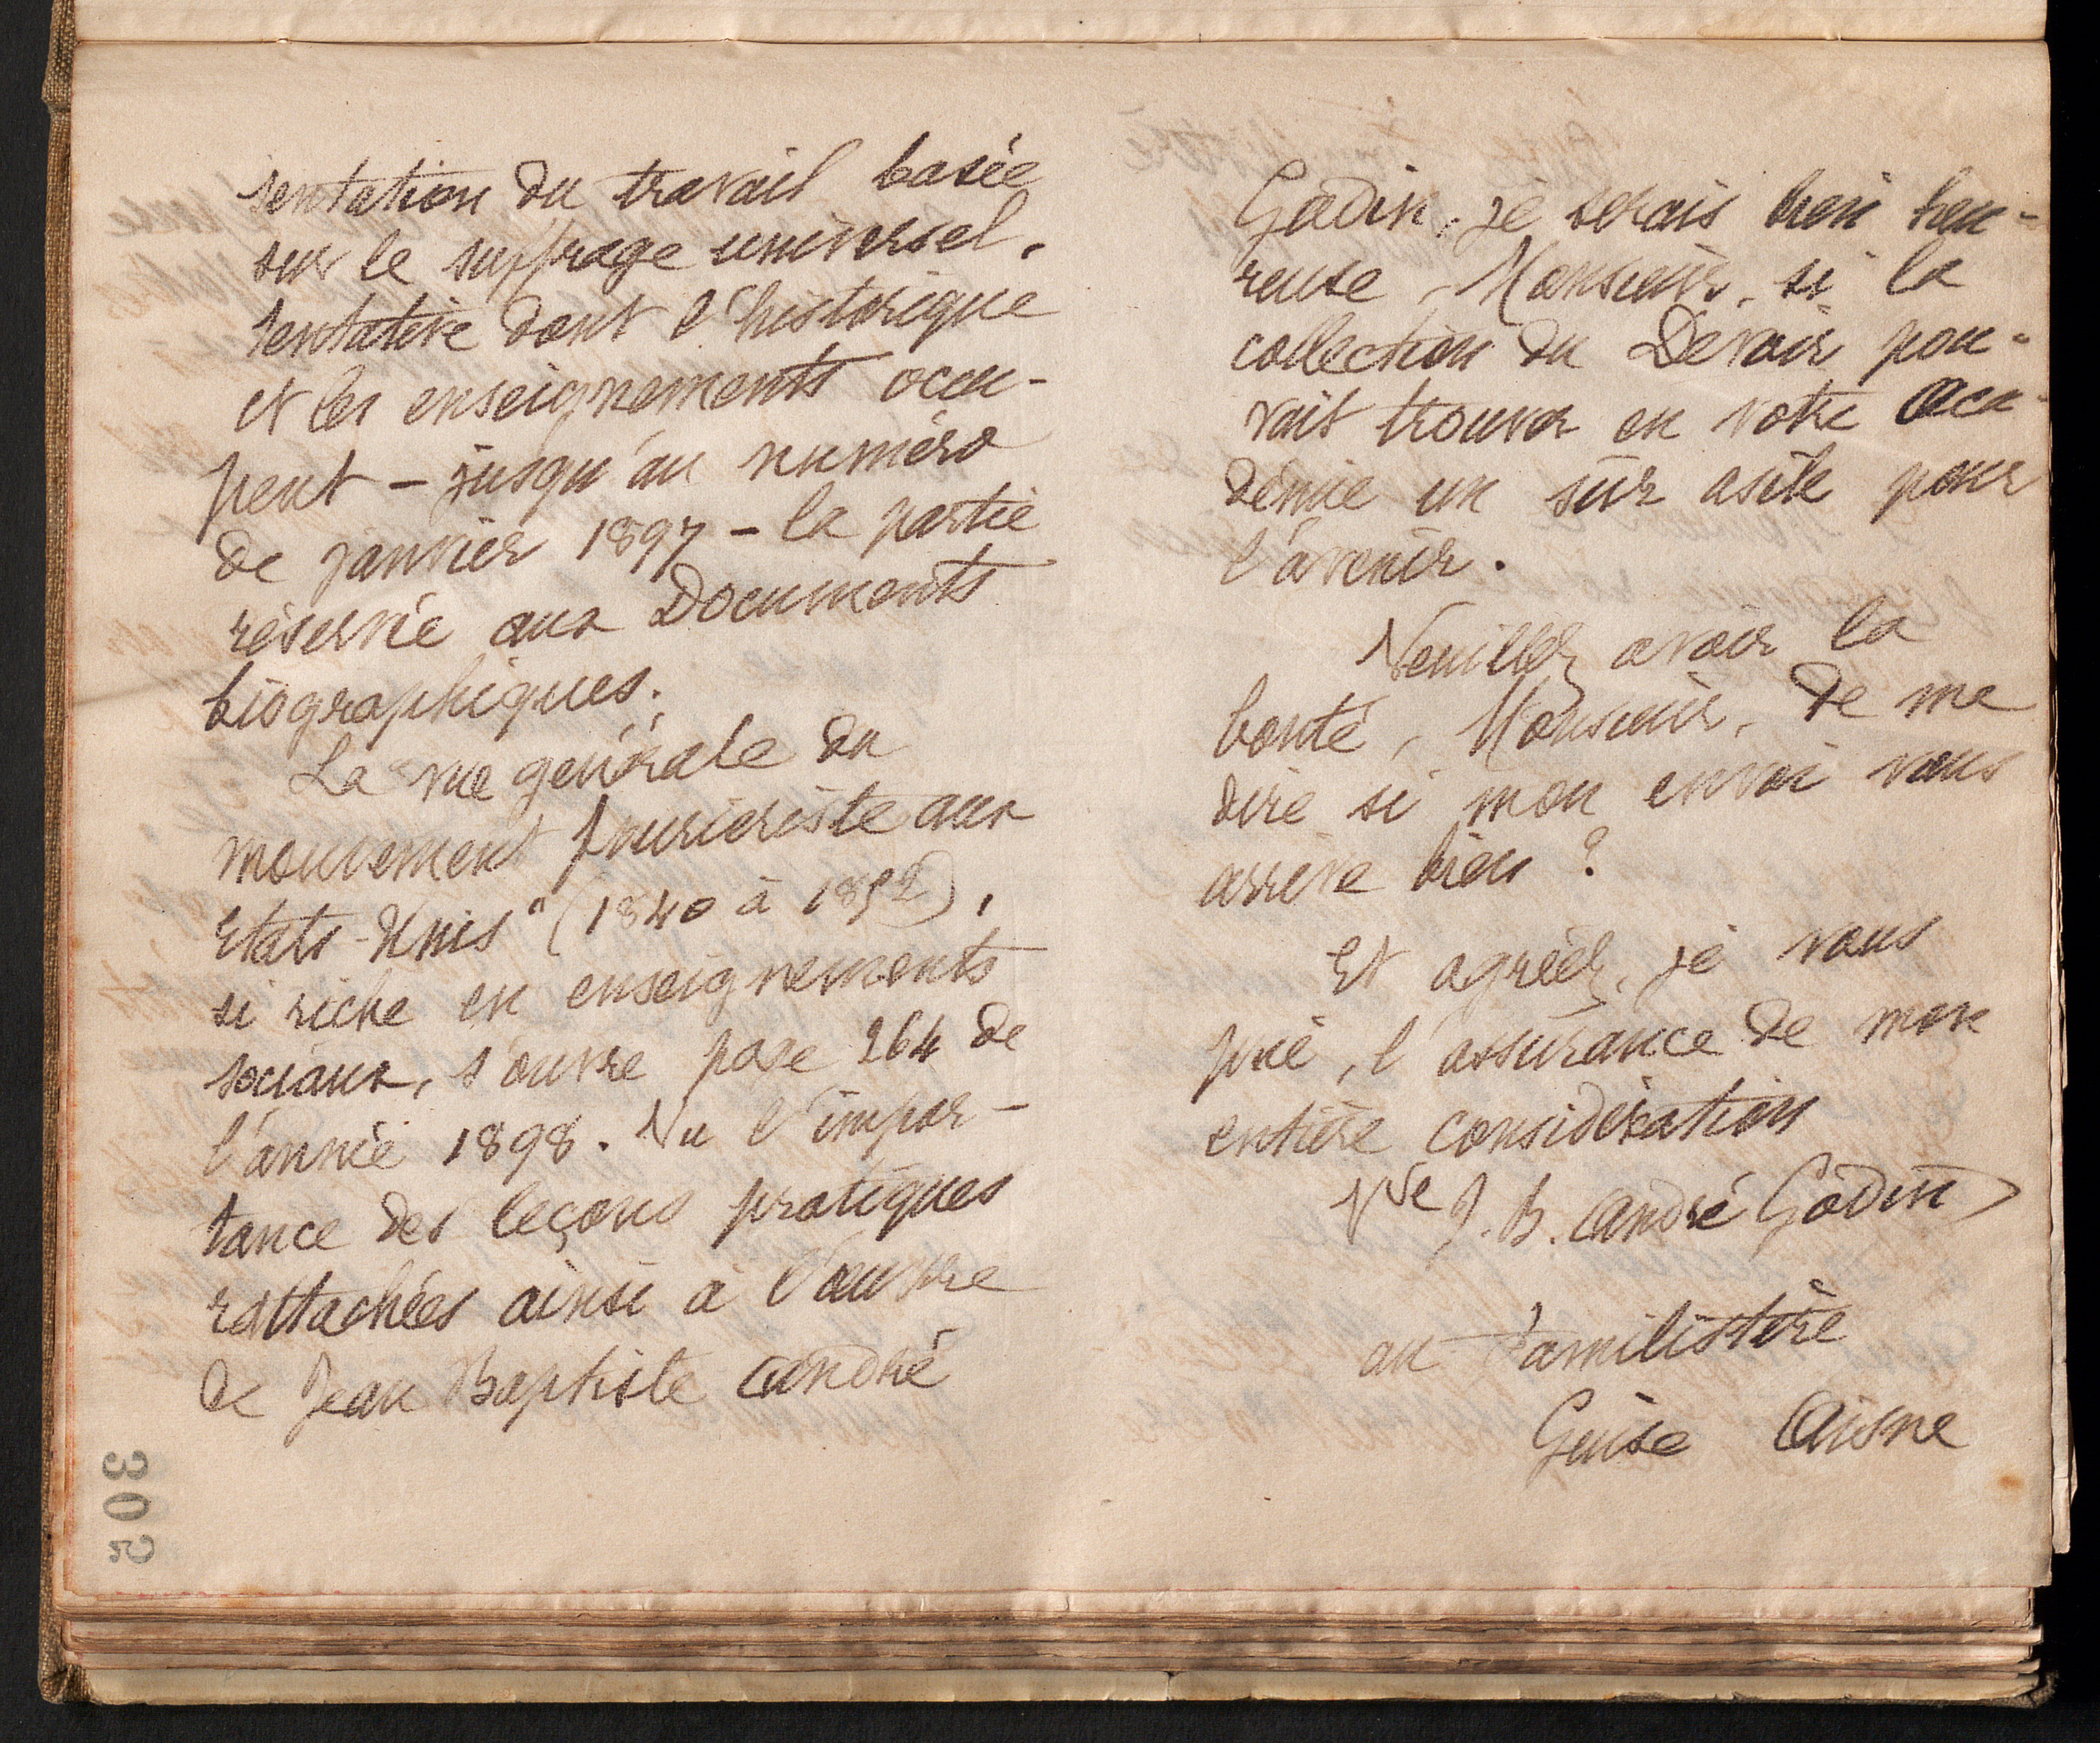 sentation du travail basée
sur le suffrage universel,
tentative dont l'historique
et les enseignements occu-
pent – jusqu'au numéro
de janvier 1897 – la partie
réservée aux Documents
biographiques.
La vue générale du
mouvement fouriériste aux
Etats-Unis" (1840 à 1852),
si riche en enseignements
sociaux, s'ouvre page 264 de
l'année 1898. Vu l'impor-
tance des leçons pratiques
rattachées ainsi à l'œuvre
de Jean Baptiste André
302
Godin, je serais bien heu-
reuse, Monsieur, si la
collection du Devoir pou-
vait trouver en votre Aca-
démie un sûr asile pour
l'avenir.
Veuillez avoir la
bonté, Monsieur, de me
dire si mon envoi vous
arrive bien ?
Et agréez, je vous
prie, l'assurance de mon
entière considération
Vve J. B. André Godin
au Familistère
Guise Aisne